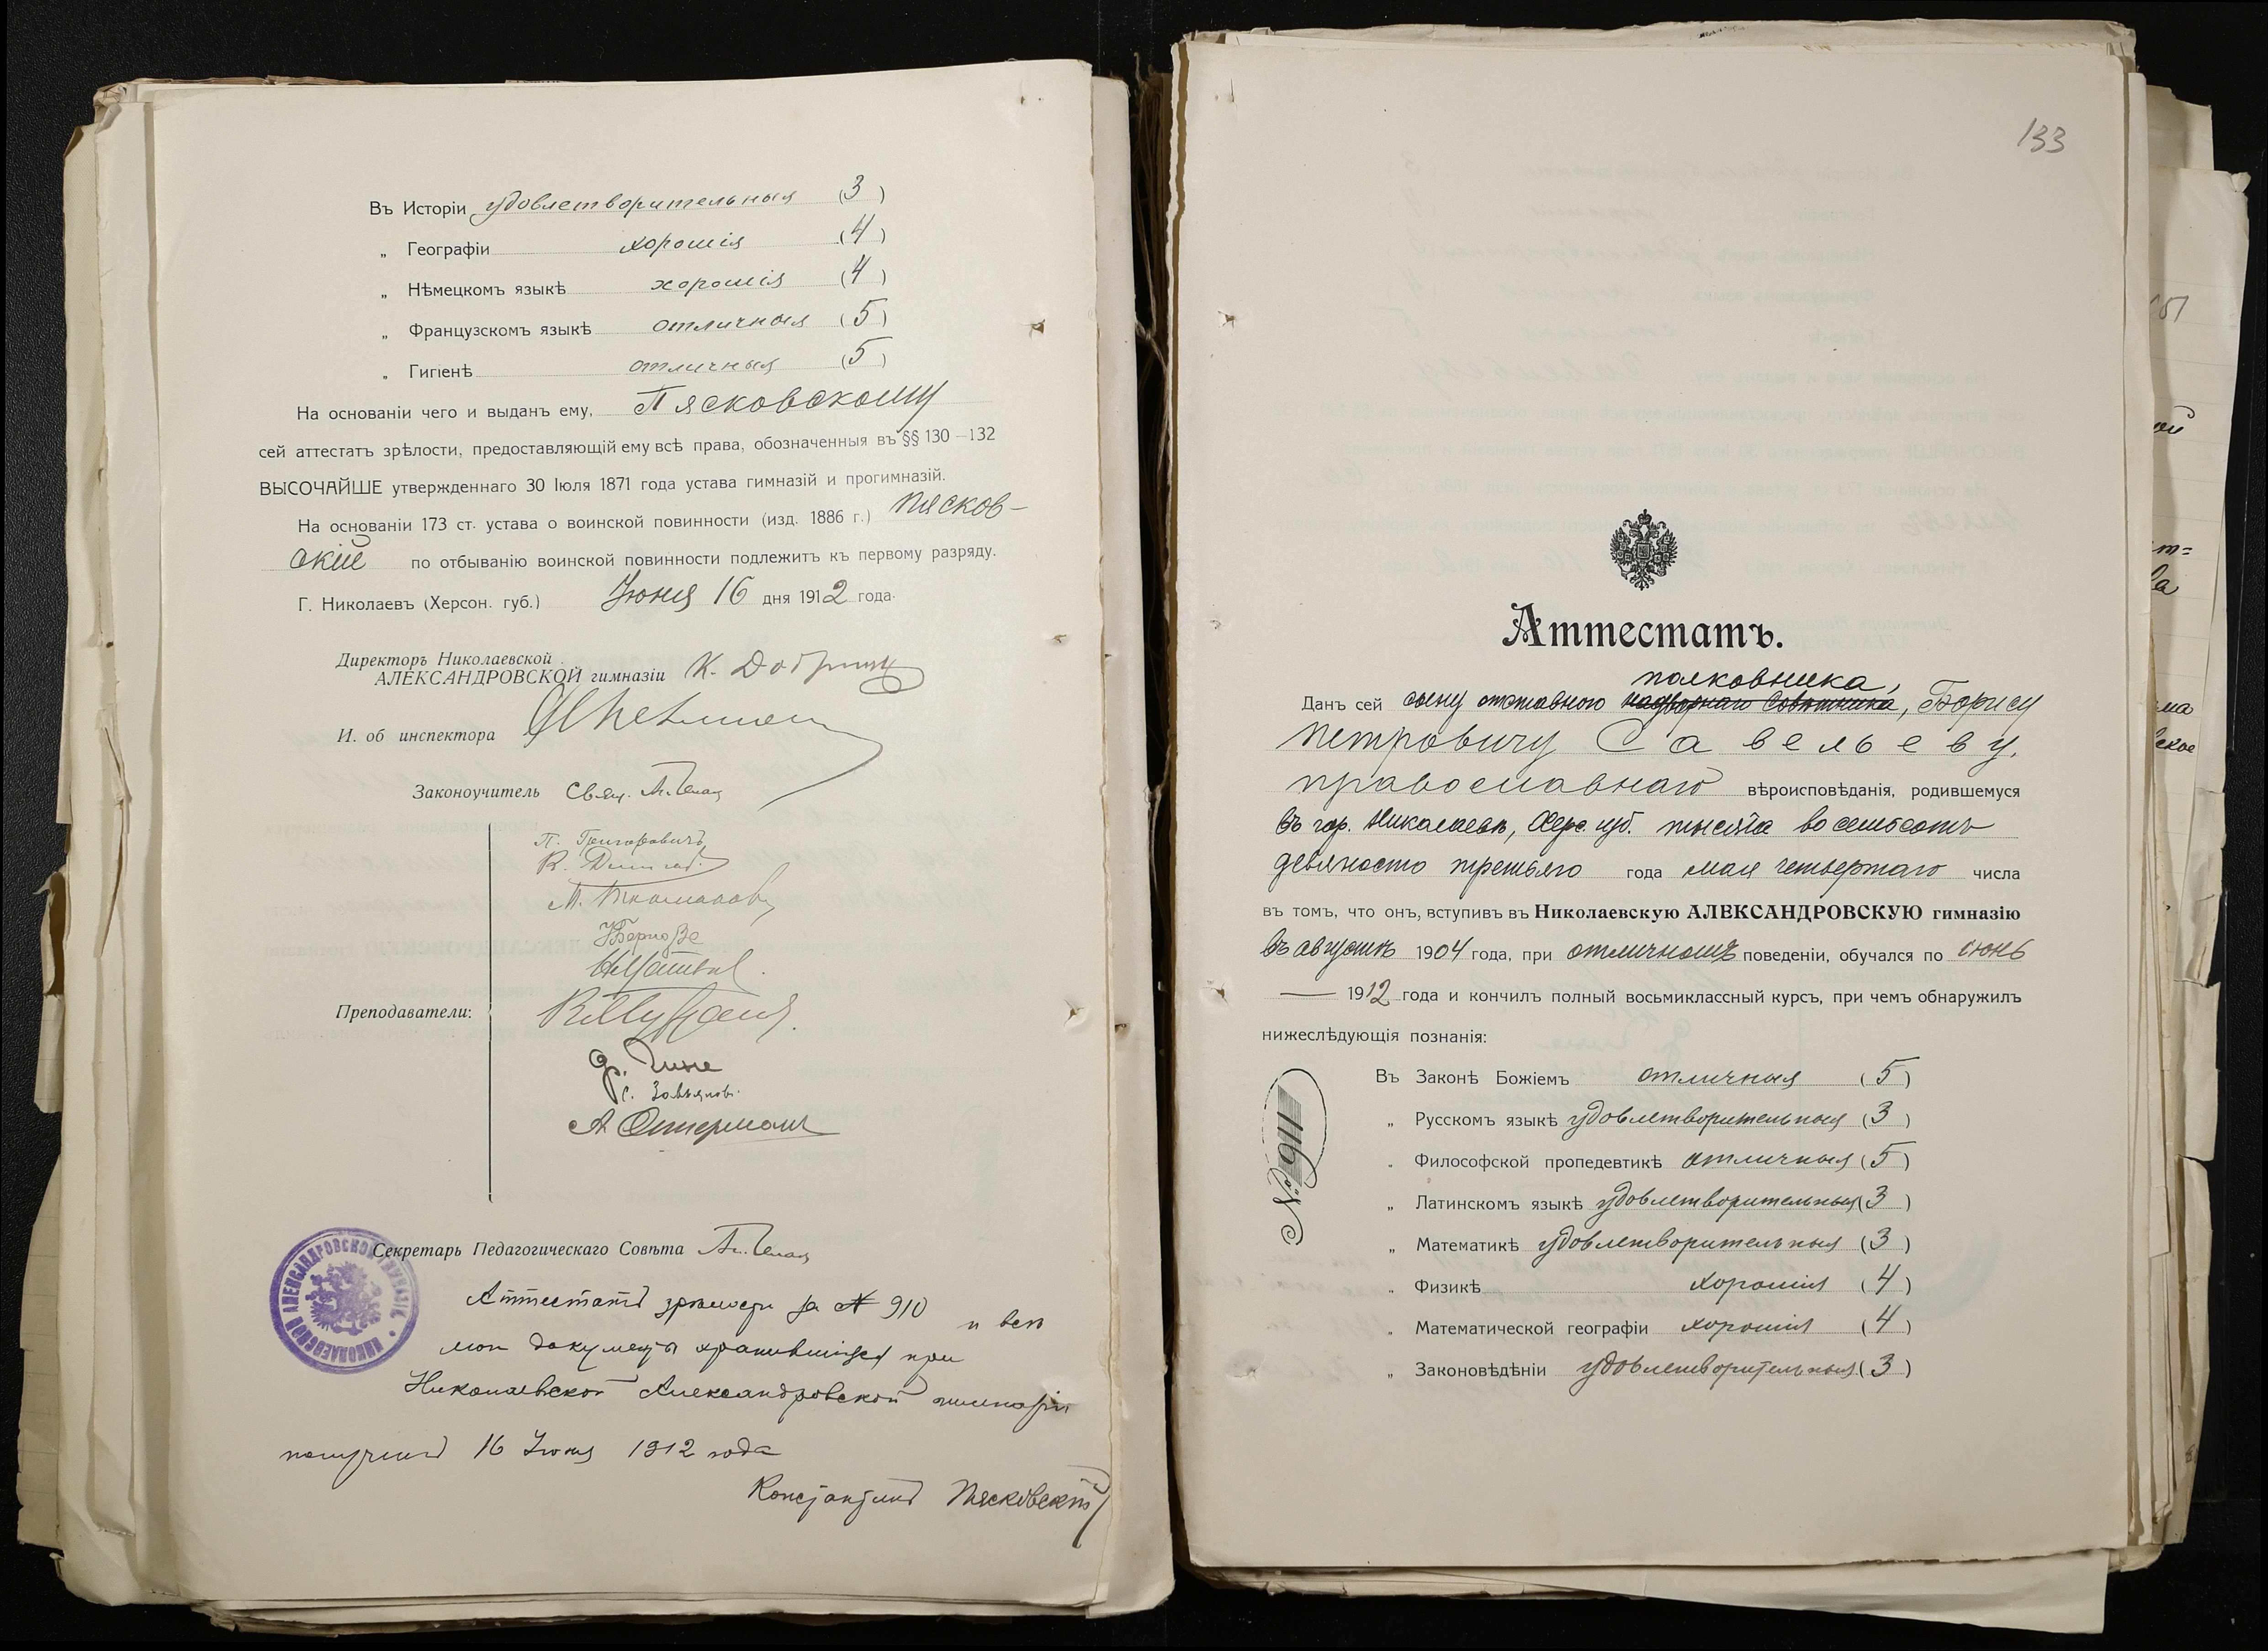 Въ Исторіи удовлетворительныя (3)
„ Географіи хорошія (4)
„ Нѣмецкомъ языкѣ хорошія (4)
„ Французскомъ языкѣ отличныя (5)
„ Гигіенѣ отличныя (5)
На основаніи чего и выданъ ему, Пясковскому
сей аттестатъ зрѣлости, предоставляющій ему всѣ права, обозначенныя въ §§ 130—132
ВЫСОЧАЙШЕ утвержденнаго 30 Іюля 1871 года устава гимназій и прогимназій.
На основаніи 173 ст. устава о воинской повинности (изд. 1886 г.) Пясков-
скій по отбыванію воинской повинности подлежитъ къ первому разряду.
Г. Николаевъ (Херсон. губ.) Іюня 16 дня 1912 года.
Директоръ Николаевской
АЛЕКСАНДРОВСКОЙ гимназіи К.
И. об инспектора
Законоучитель Свящ.
П. Григоровичъ
Преподаватели:
Секретарь Педагогическаго Совѣта
Аттестатъ зрѣлости за № 910 и всѣ
мои документы хранившіеся при
Николаевской Александровской гимназіи
получилъ 16 Іюня 1912 года
Константинъ Пясковскій
133
Аттестатъ.
полковника,
Данъ сей сыну отставного надворнаго совѣтника, Борису
Петровичу Савельеву,
православнаго вѣроисповѣданія, родившемуся
въ гор. Николаевѣ, Херс. губ. тысяча восемьсотъ
девяносто третьяго года мая четвертаго числа
въ томъ, что онъ, вступивъ въ Николаевскую АЛЕКСАНДРОВСКУЮ гимназію
въ августѣ 1904 года, при отличномъ поведеніи, обучался по іюнь
— 1912 года и кончилъ полный восьмиклассный курсъ, при чемъ обнаружилъ
нижеслѣдующія познанія:
Въ Законѣ Божіемъ отличныя (5)
„ Русскомъ языкѣ удовлетворительныя (3)
„ Философской пропедевтикѣ отличныя (5)
„ Латинскомъ языкѣ удовлетворительныя (3)
„ Математикѣ удовлетворительныя (3)
„ Физикѣ хорошія (4)
„ Математической географіи хорошія (4)
„ Законовѣдѣніи удовлетворительныя (3)
№ 911